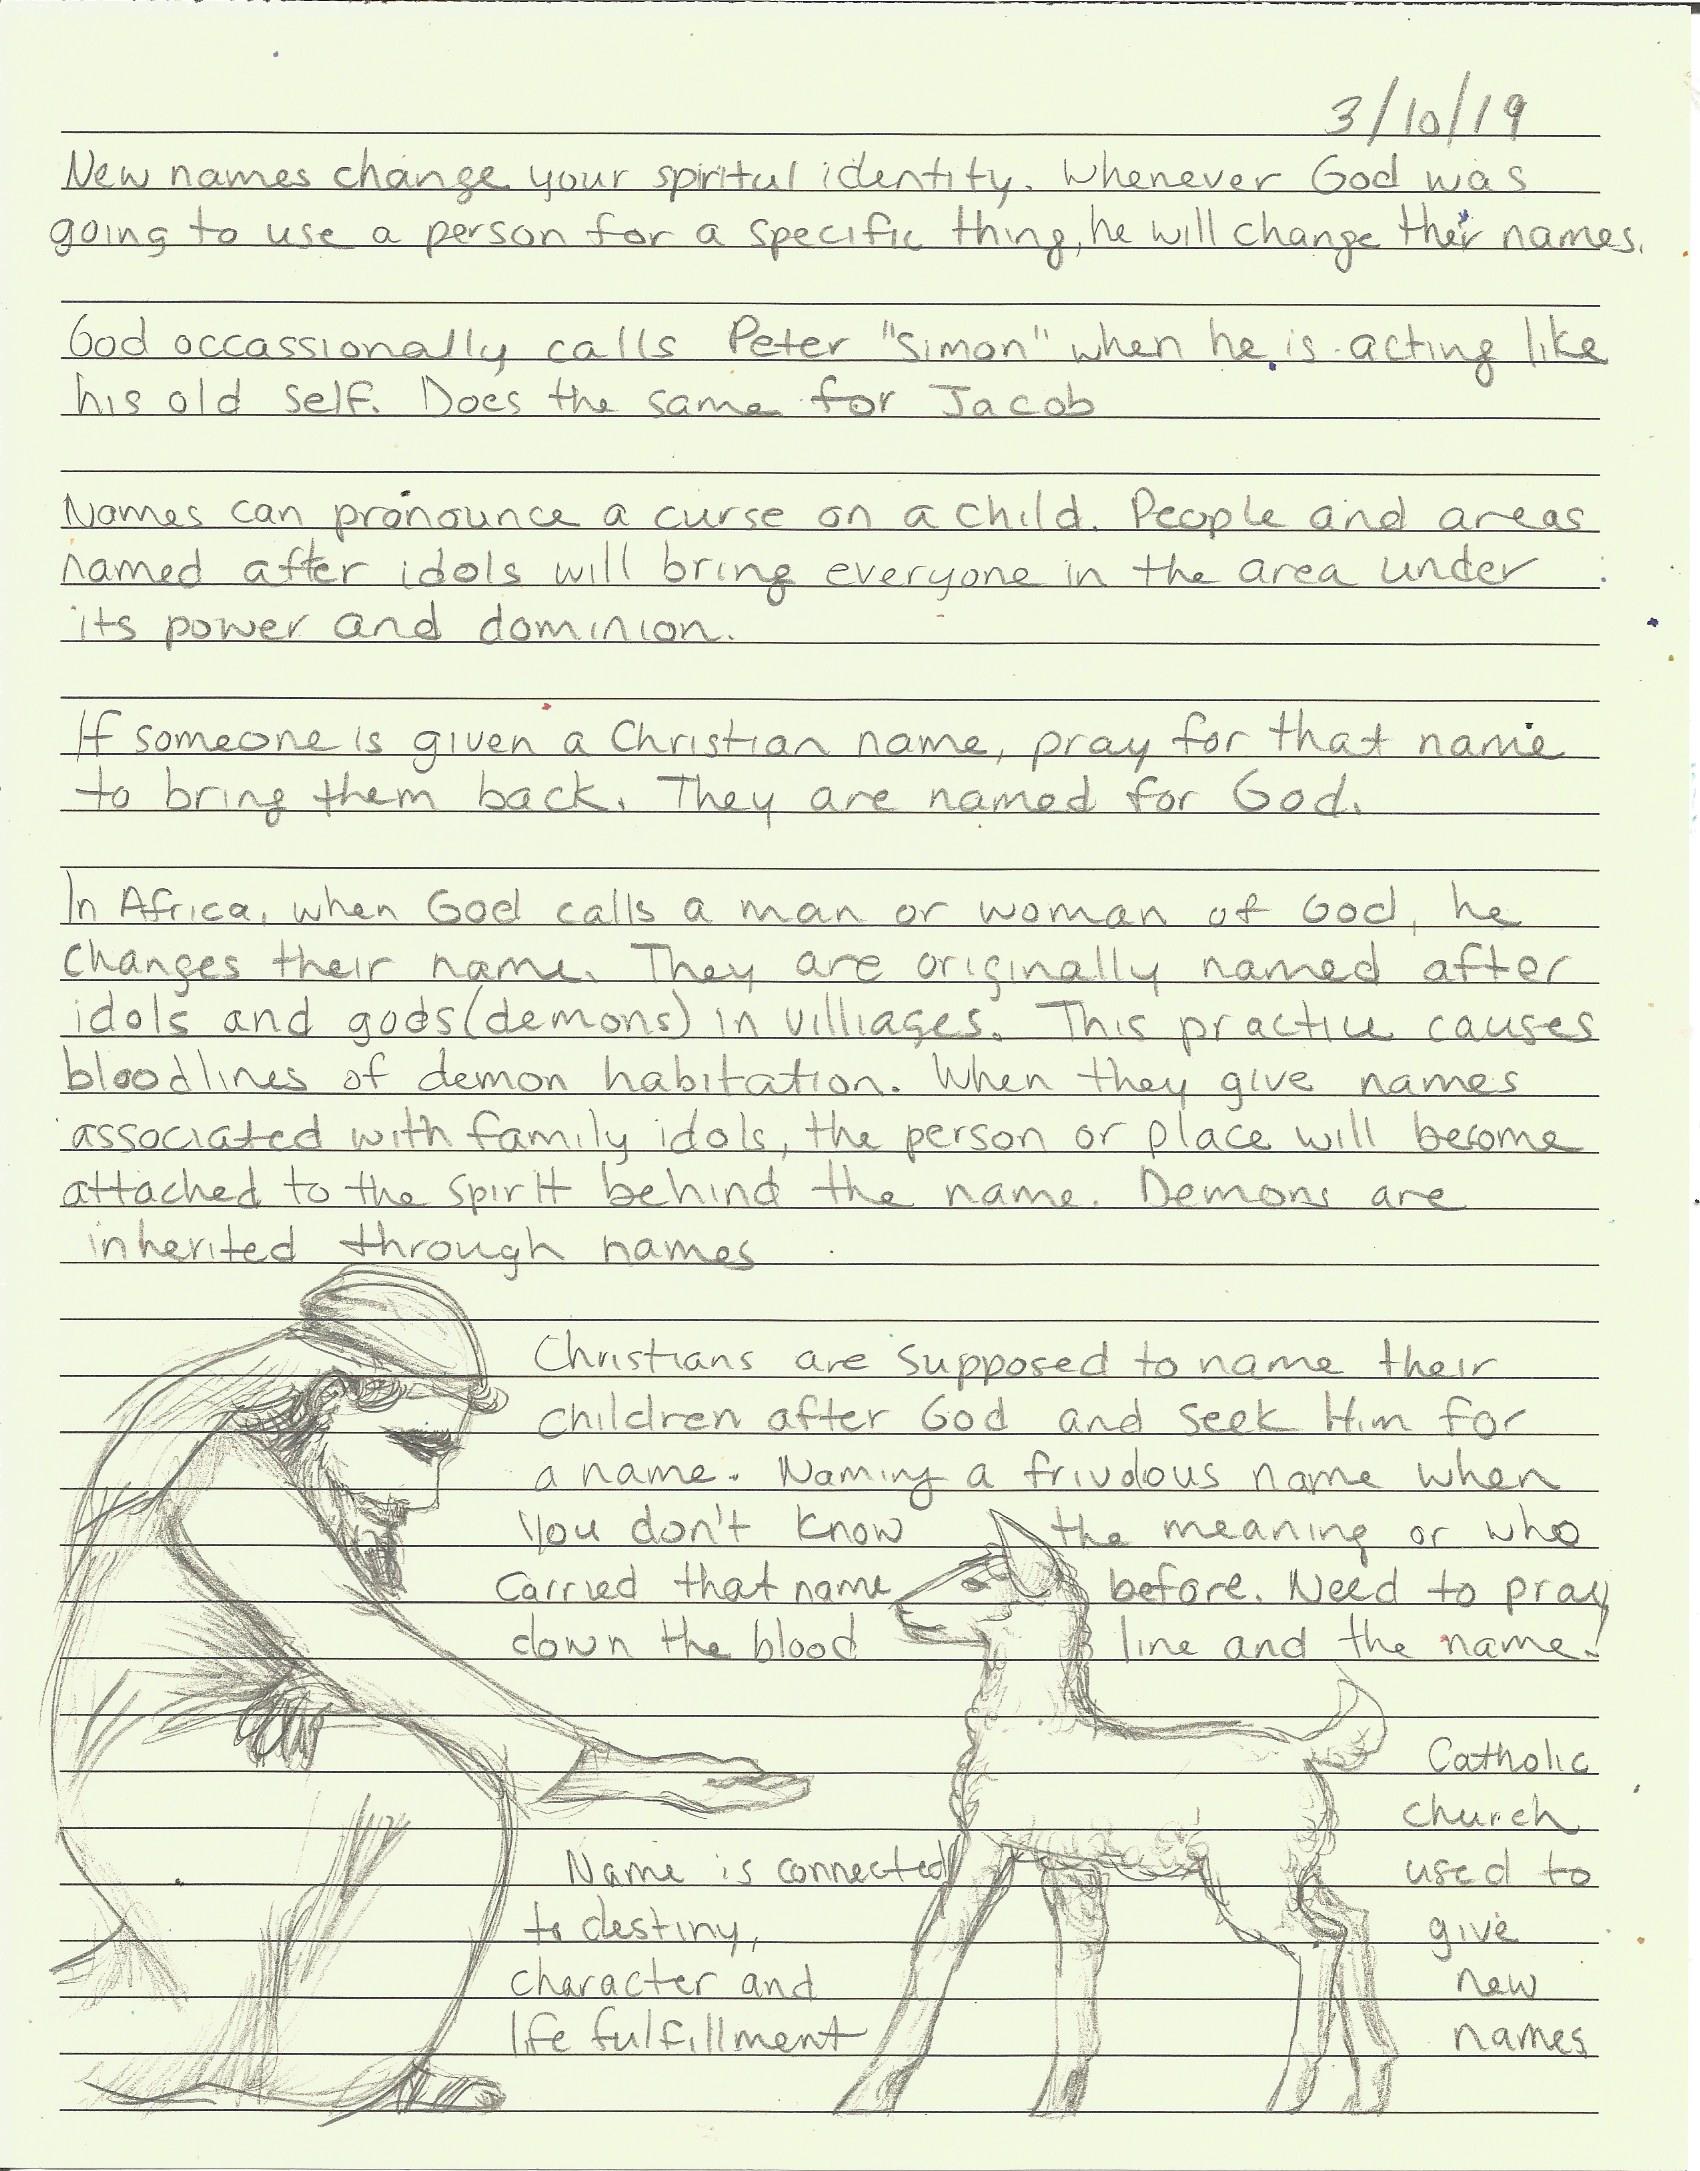 3/10/19
New names change your spiritul identity. Whenever God was
going to use a person for a specific thing, he will change their names.
God occassionally calls Peter "Simon" when he is acting like
his old self. Does the same for Jacob
Names can pronounce a curse on a child. People and areas
named after idols will bring everyone in the area under
its power and dominion.
If someone is given a Christian name, pray for that name
to bring them back. They are named for God.
In Africa, when God calls a man or woman of God, he
changes their name. They are originally named after
idols and gods (demons) in villiages. This practice causes
bloodlines of demon habitation. When they give names
associated with family idols, the person or place will become
attached to the spirit behind the name. Demons are
inherited through names
Christians are supposed to name their
children after God and seek Him for
a name. Naming a frivolous name when
you don't know the meaning or who
carried that name before. Need to pray
down the blood line and the name.
Name is connected
to destiny,
character and
life fulfillment
Catholic
church
used to
give
new
names